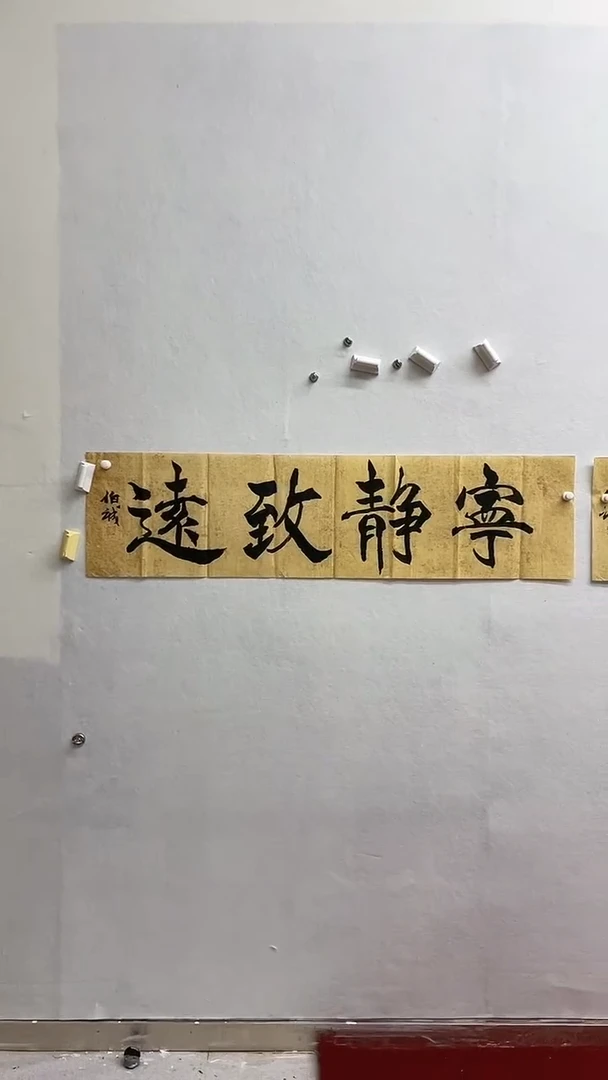 寧靜致遠
伯誠